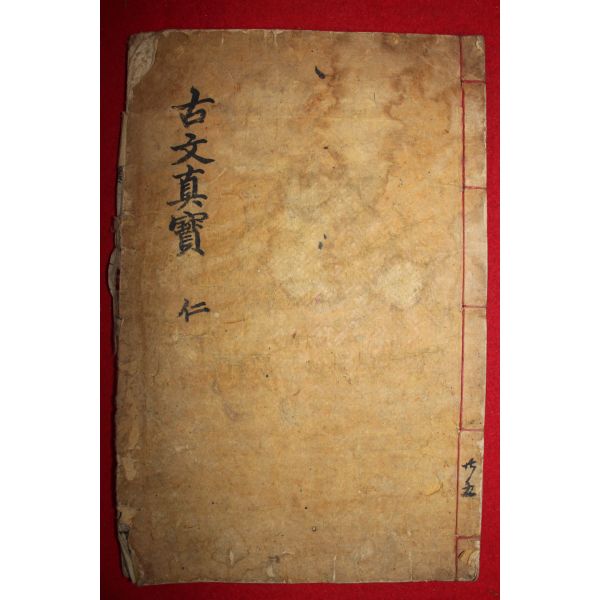 古文真寶 仁
共五